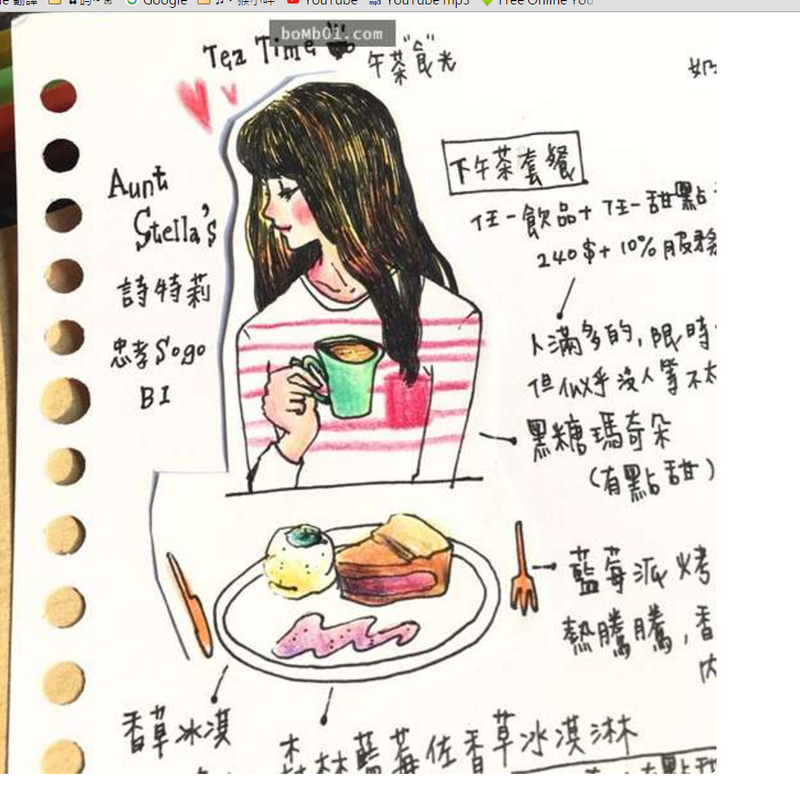 Google
YouTube
YouTube mp3
Free Online You
bomb01.com
Tea Time
午茶"食"光
Aunt
Stella's
詩特莉
忠孝Sogo
B1
下午茶套餐
任一飲品+任一甜點
240$+10%服務
人滿多的,限時
但似乎沒人等不太
黑糖瑪奇朵
(有點甜)
藍莓派 烤
熱騰騰,香
內
香草冰淇
森林藍莓佐香草冰淇淋